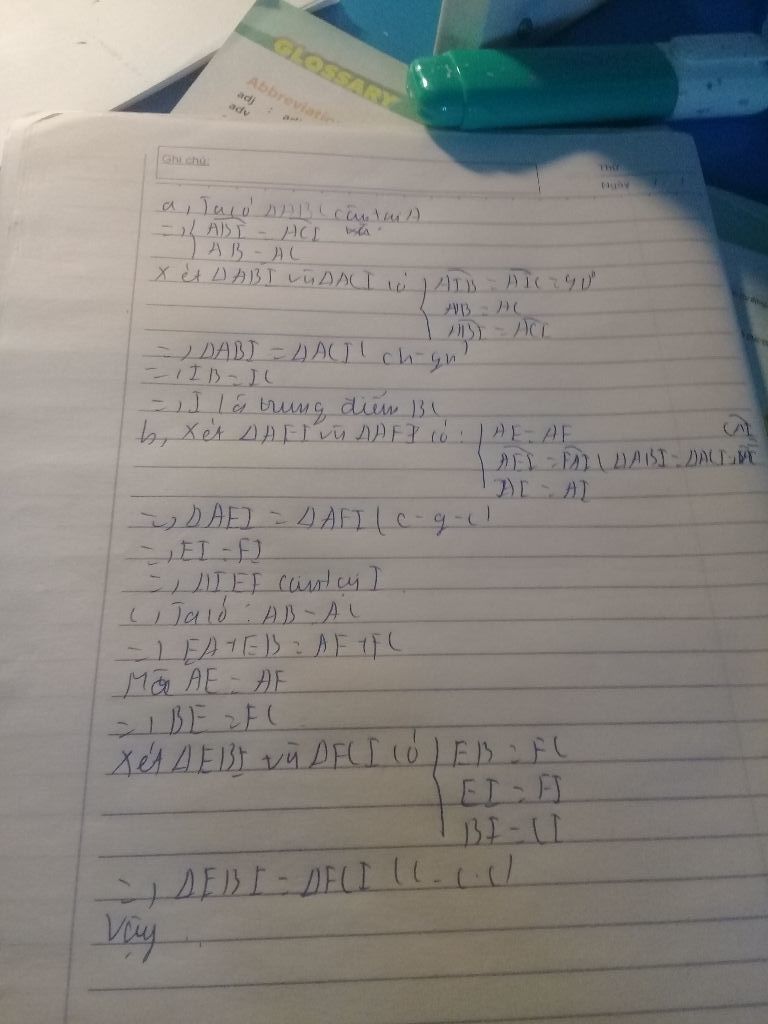 GLOSSARY
Abbreviatio
adj :
adv
Ghi chú:
Thứ
Ngày
a, Ta có ΔABC cân tại A
=> { ABI = ACI
AB = AC
Xét ΔABI và ΔACI có { AIB = AIC = 90°
AB = AC
ABI = ACI
=> ΔABI = ΔACI (ch-gn)
=> IB = IC
=> I là trung điểm BC
b, Xét ΔAEI và ΔAFI có: { AE = AF
= FAI (ΔABI = ΔACI)
AI = AI
=> ΔAEI = ΔAFI (c-g-c)
=> EI = FI
=> ΔIEF cân tại I
c, Ta có: AB = AC
=> EA + EB = AF + FC
Mà AE = AF
=> BE = FC
Xét ΔEBI và ΔFCI có { EB = FC
EI = FI
BI = CI
=> ΔEBI = ΔFCI (c-c-c)
Vậy ...